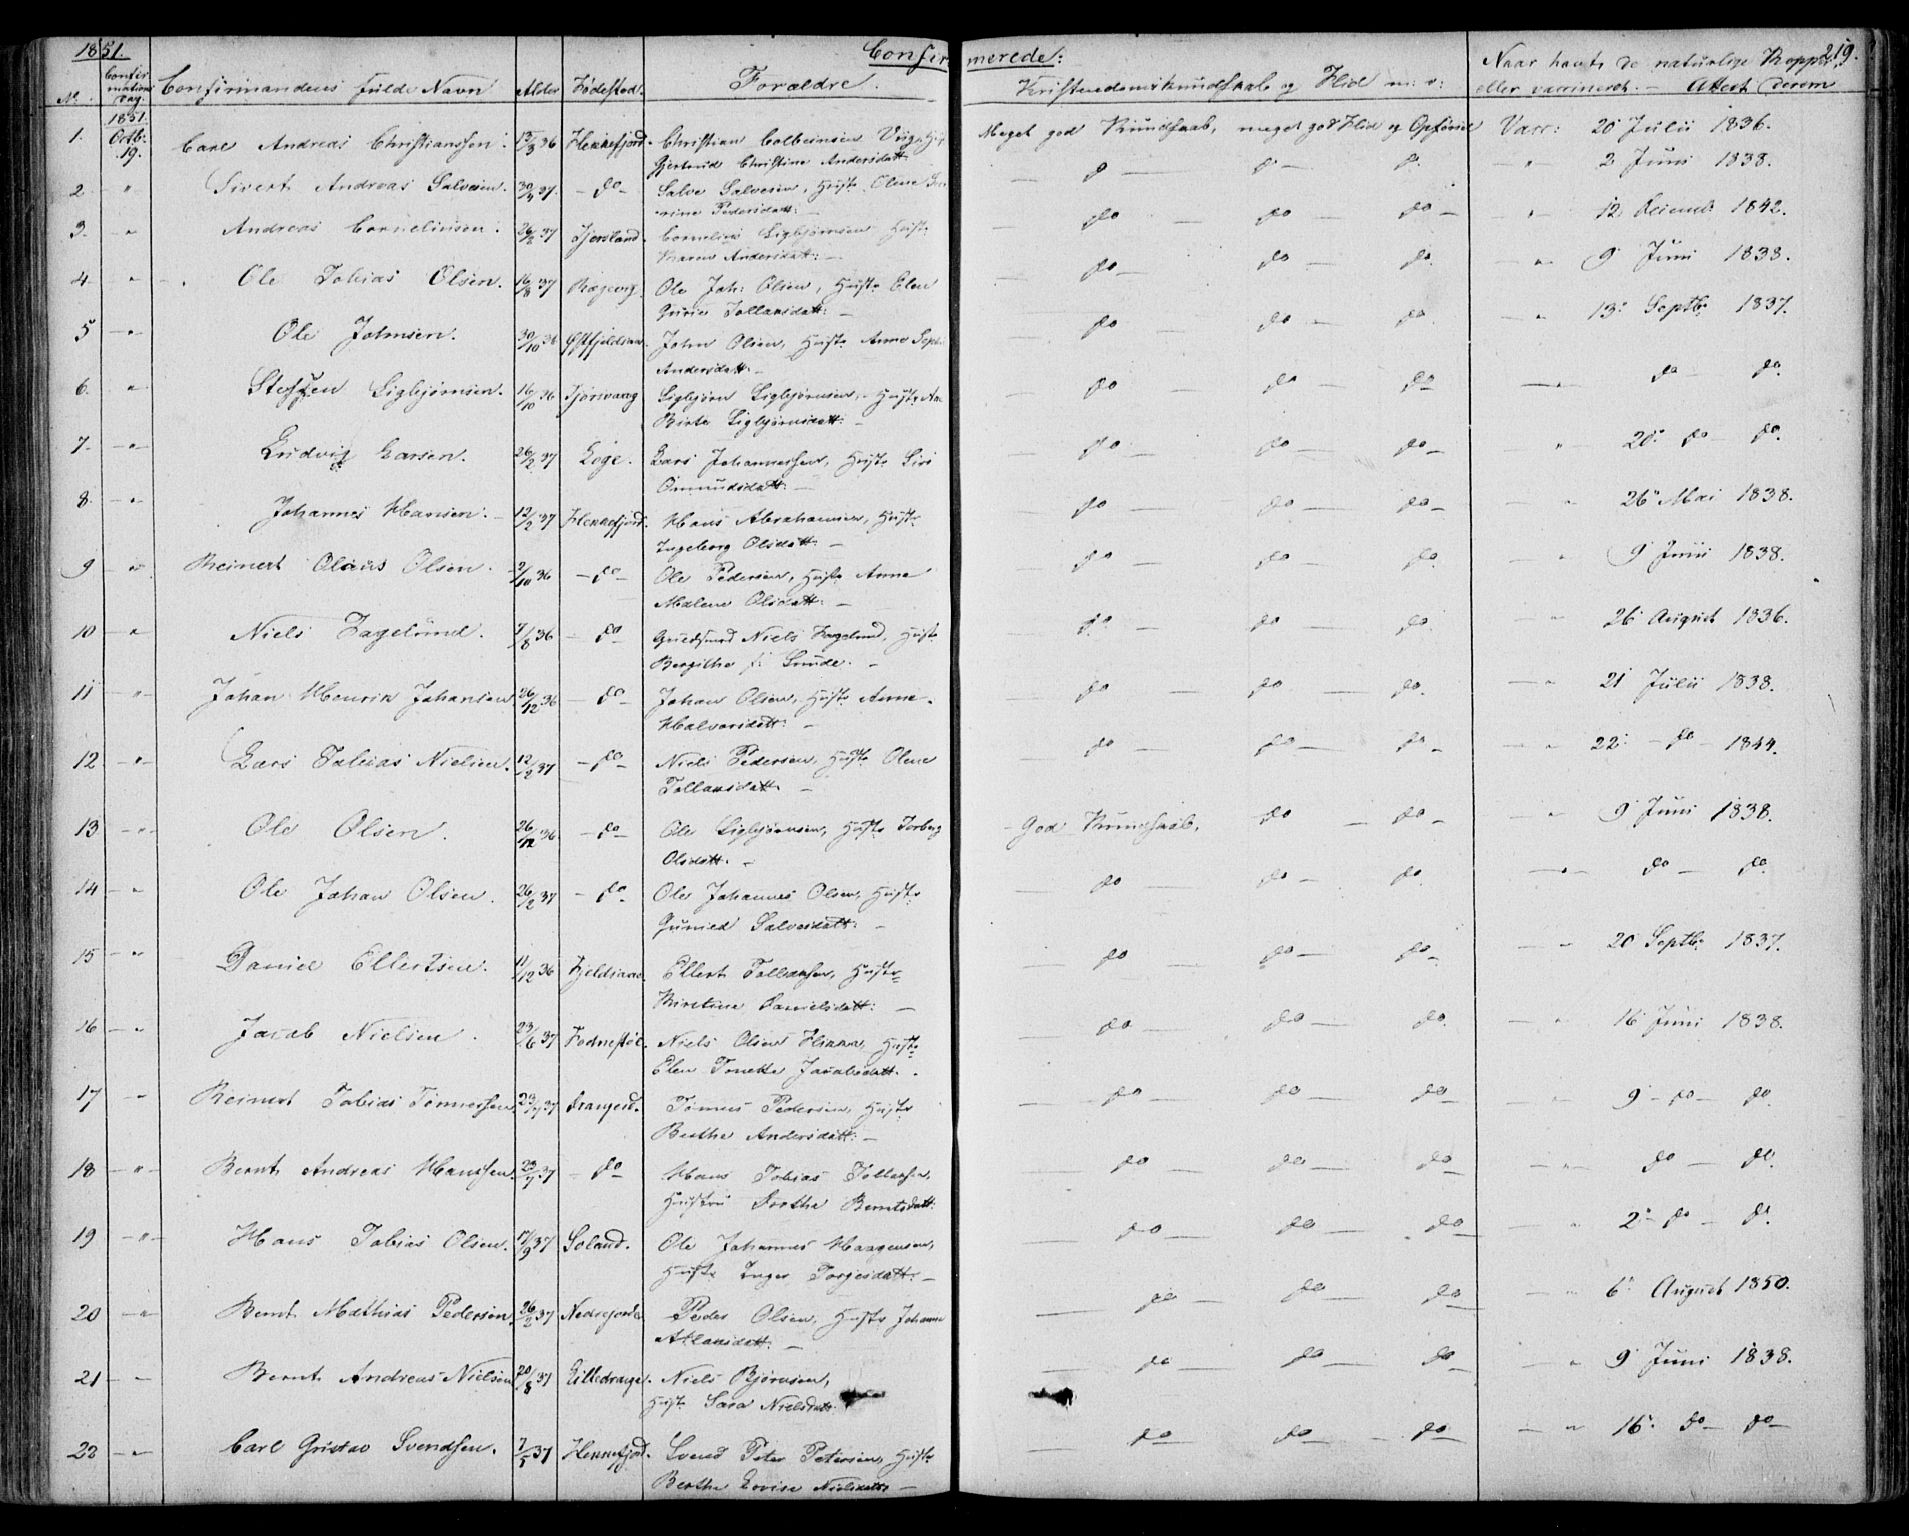 1851.
Confirmerede:
219.
No. Confirmations Dag. Confirmandens fulde Navn Alder Fødested. Forældre. Kristendomskundskab og Flid m: v: Naar havt de naturlige Kopper eller vaccineret. — Attest derom
1. 1851 Octb: 19. Carl Andreas Christianssen. 13/3 36 Hekkefjord. Christian Colbeinsen Gjertrud Christine Andersdatt: Meget god Kundskab, meget god Flid og Opførsel Vacc: 20 Julii 1836.
2 " Sivert Andreas Salvesen. 30/3 37. do Salve Salvesen, Hustr. Olene Pedersdatt: — do — do — do. " 2 Juni 1838.
3. " Andreas Corneliusen. 26/2 37 Gjersland. Cornelius Sigbjørnsen Hustr: Karen Andersdatt: — do — do — do — " 12 Decemb: 1842.
4 " Ole Tobias Olsen. 16/8 37 Ræge­vig Ole Joh: Olsen, Hustr: Elen Gurie Tollaksdatt: — do — do — do. " 9 Juni 1838.
5 " Ole Johnsen. 30/10 36 John Olsen, Hustr: Anne Andersdatt: — do — do — do. " 13 Septb: 1837.
6. " Steffen Sigbjørnsen. 16/10 36 Sigbjørn Sigbjørnsen, Hustr: Birte Sigbjørnsdatt: — do — do — do " do — do.
7. " Ludvig Larsen. 26/2 37 Loge. Lars Johannessen, Hustr: Siri Omundsdatt: — do — do — do — " 20 do do.
8. " Johannes Hansen. 12/2 37 Hekkefjord. Hans Abrahamsen, Hustr: Ingeborg Olsdatt: — do — do — do — " 26 Mai 1838.
9 " Reinert Olaus Olsen. 2/10 36 do Ole Pedersen, Hustr: Anne Malene Olsdatt: — do — do — do. " 9 Juni 1838.
10 " Niels Fagelund. 7/8 36 do Niels Fagelund, Hustr: Bergithe f: — do — do — do. " 26 August 1836.
11 " Johan Henrik Johansen 26/12 36 do Johan Olsen, Hustr: Anne Halvorsdatt: — do — do — do. " 21 Julii 1838.
12 " Lars Tobias Nielsen. 12/2 37 do Niels Pedersen, Hustr: Olene Tollaksdatt: — do — do — do — " 22 do 1844.
13 " Ole Olsen. 26/12 36. do Ole Sigbjørnsen, Hustr: Torborg Olsdatt: — God Kundskab, do — do — " 9 Juni 1838.
14 " Ole Johan Olsen. 26/2 37 do Ole Johannes Olsen, Hustr: Gunild Salvesdatt: — do — do — do. " do — do.
15 " Daniel Ellertsen. 11/12 36 Fjeldsaae Ellert Tollaksen, Hustr: Danielsdatt: — do — do — do — " 20 Septb: 1837.
16 " Jacob Nielsen. 23/6 37 Fodnestøl. Niels Olsen Hustr: Elen Tonette Jacobsdatt: do — do — do. " 16 Juni 1838.
17 " Reinert Tobias Tønnessen. 23/7 37 Drangeid. Tønnes Pedersen, Hustr: Berthe Andersdatt: — do — do — do 9 do — do.
18 " Bernt Andreas Hanssen. 23/7 37 do Hans Tobias Tollaksen, Hustru Dorthe Berntsdatt: do — do — do " do — do.
19 " Hans Tobias Olsen. 17/9 37 Soland. Ole Johannes Haagensen, Hustr: Inger Torgersdatt: — do — do — do " 2 do — do.
20 " Bernt Mathias Pedersen. 26/2 37 Peder Olsen, Hustr: Johanne Atlaksdatt: — do — do — do — " 6 August 1850.
21 " Bernt Andreas Nielsen 20/8 37 Lilledrange. Niels Bjørnsen, Hustr: Sara Nielsdatt: — do — do — do " 9 Juni 1838.
22 " Carl Gustav Svendsen. 7/5 37 Hekkefjord. Svend Peter Petersen, Hustr: Berthe Lovise Nielsdatt: — do — do — do — " 16 do — do —